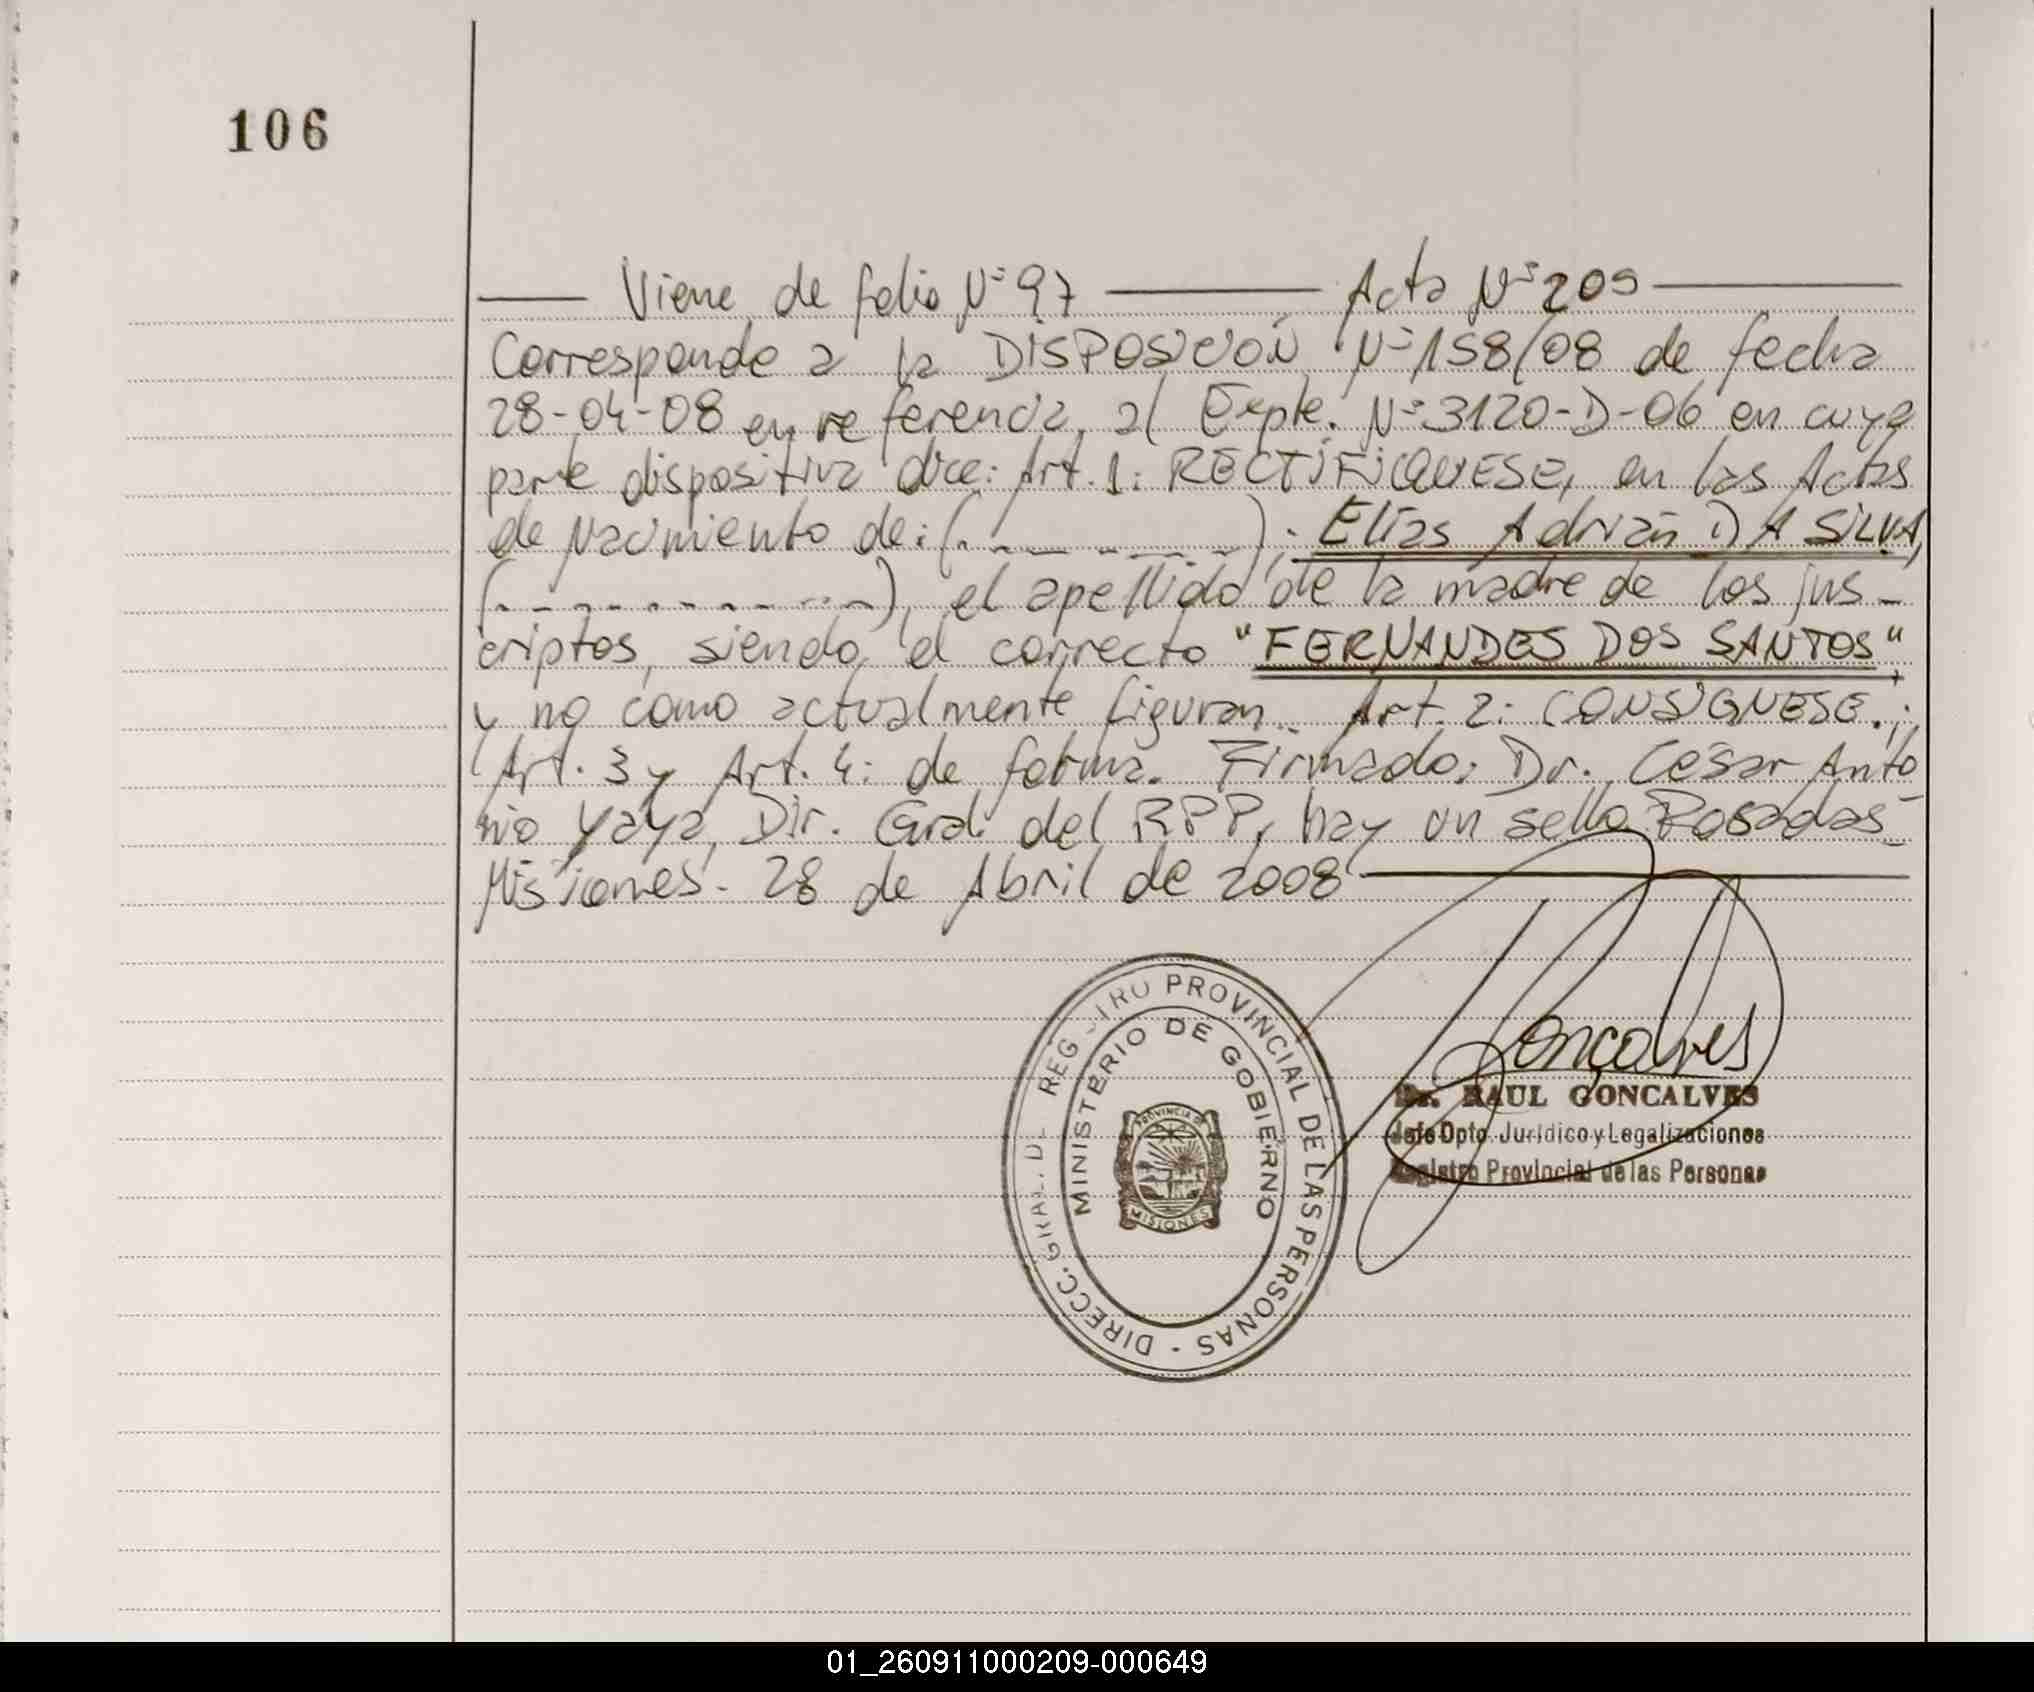 106
Viene de folio Nº 97 Acta Nº 209
Corresponde a la DISPOSICIÓN Nº 158/08 de fecha
28-04-08 en referencia al Expte. Nº 3120-D-06 en cuya
parte dispositiva dice: Art. 1: RECTIFIQUESE, en las Actas
de Nacimiento de: (. - - - - - -); Elías Adrián DA SILVA,
(- - - - - - - - - - -), el apellido de la madre de los ins-
criptos, siendo el correcto "FERNANDES DOS SANTOS",
y no como actualmente figuran. Art. 2: CONSIGNESE.;
Art. 3 y Art. 4: de forma. Firmado: Dr. César Anto-
nio Yaya, Dir. Gral. del RPP, hay un sello. Posadas
Misiones. 28 de Abril de 2008
Goncalves
Dr. RAUL GONCALVES
Jefe Dpto. Jurídico y Legalizaciones
Registro Provincial de las Personas
DIRECC. GRAL. DEL REGISTRO PROVINCIAL DE LAS PERSONAS -
MINISTERIO DE GOBIERNO
PROVINCIA DE
MISIONES
01_260911000209-000649